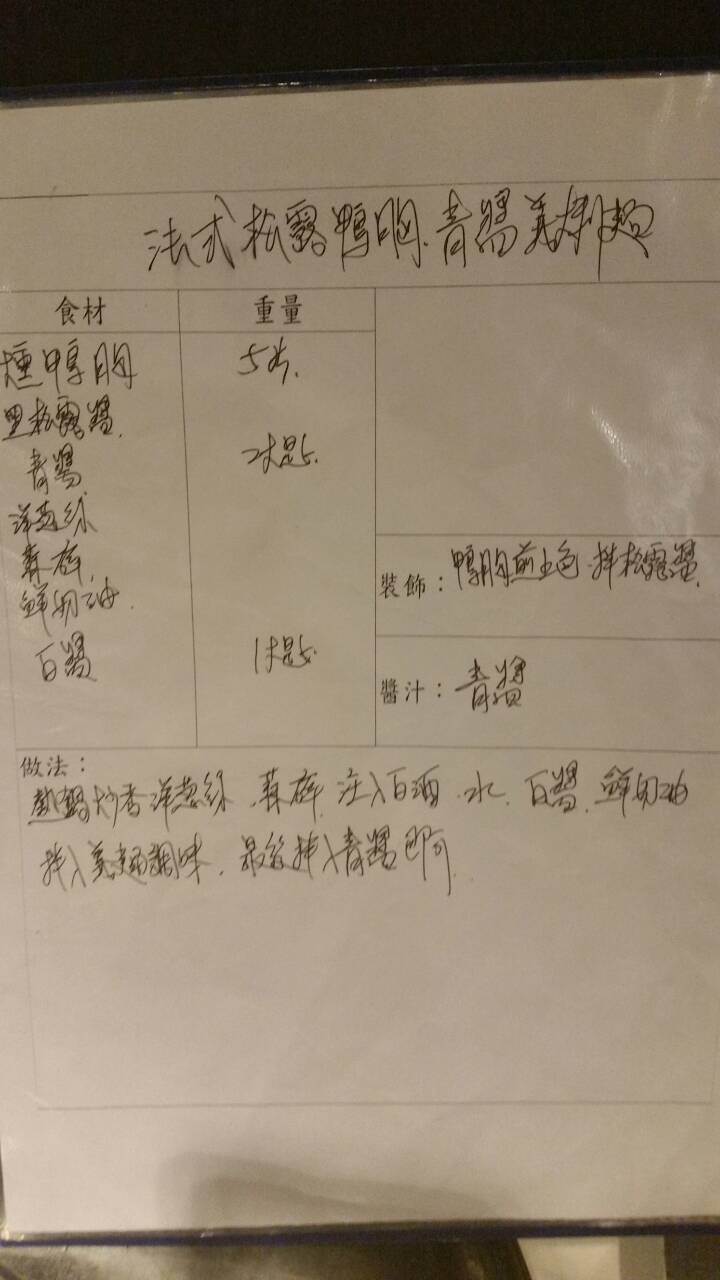 法式松露鴨胸.青醬義大利麵
食材
重量
燻鴨胸
5片.
黑松露醬.
青醬
2大匙.
洋葱絲
蒜碎.
鮮奶油.
白醬
1大匙.
裝飾：鴨胸煎上色.拌松露醬.
醬汁：青醬
做法：
熱鍋炒香洋葱絲.蒜碎.注入白酒.水.白醬.鮮奶油
拌入義麵調味.最後拌入青醬即可.